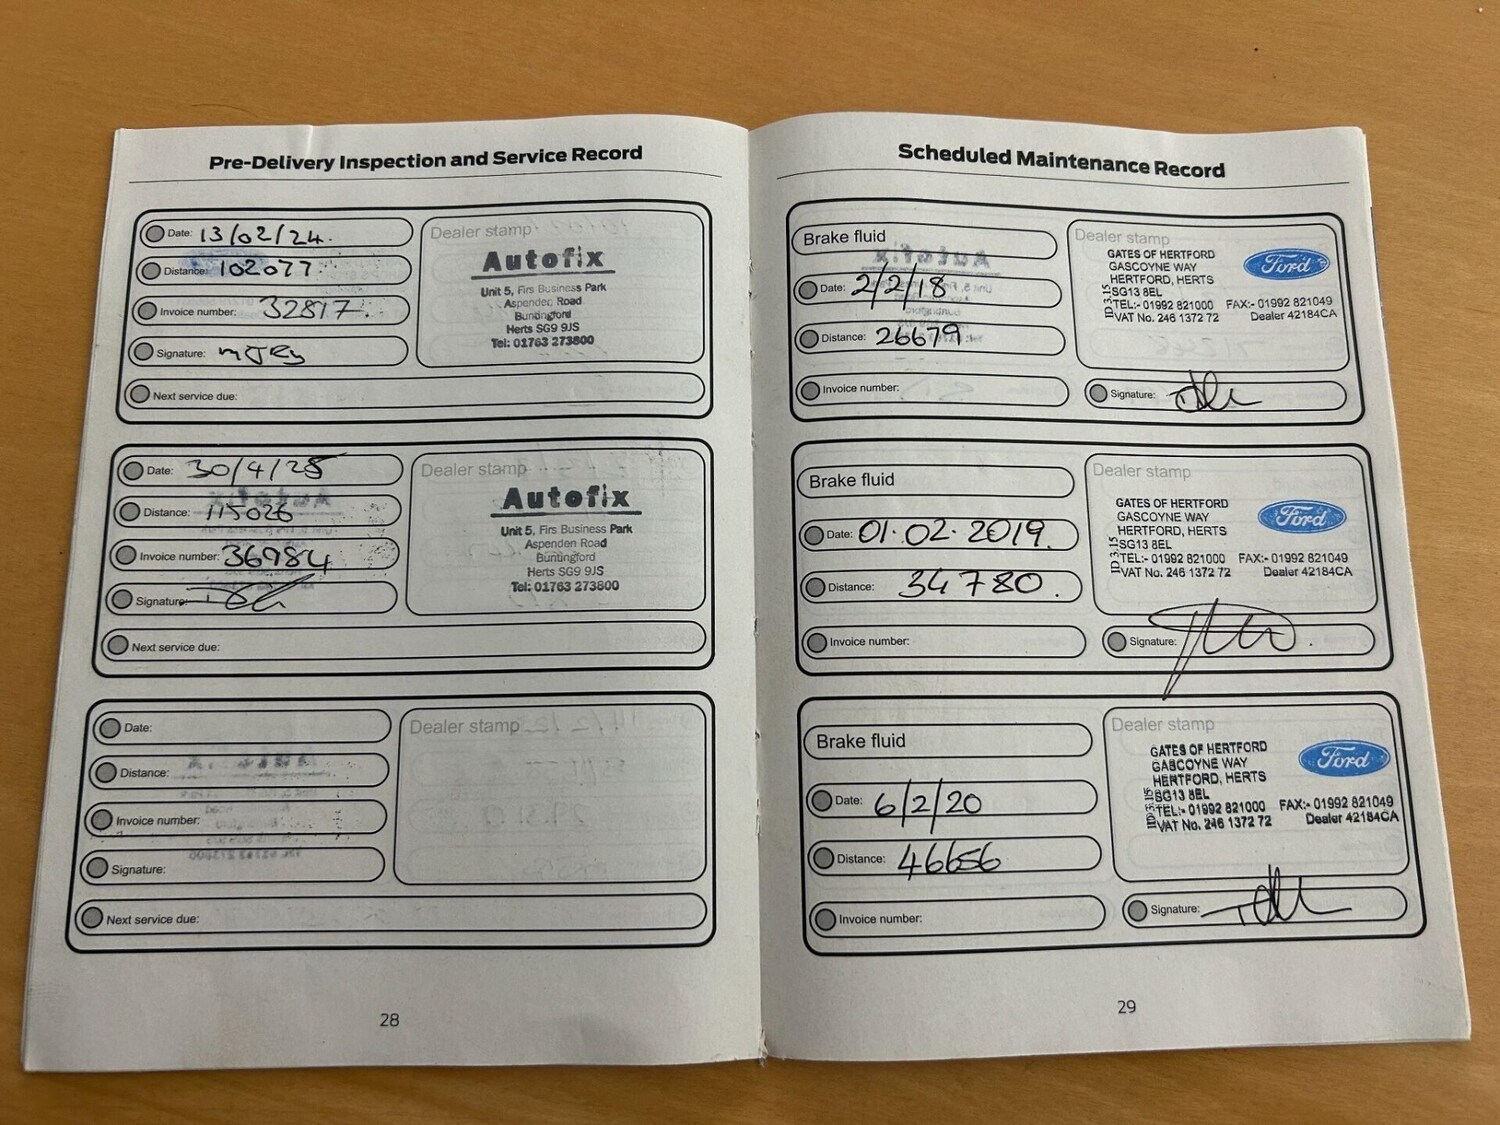 Pre-Delivery Inspection and Service Record
Date: 13/02/24.
Distance: 102077.
Invoice number: 32817.
Signature:
Next service due:
Dealer stamp
Autofix
Unit 5, Firs Business Park
Aspenden Road
Buntingford
Herts SG9 9JS
Tel: 01763 273800
Date: 30/4/25
Distance: 115026
Invoice number: 36984
Signature:
Next service due:
Dealer stamp
Autofix
Unit 5, Firs Business Park
Aspenden Road
Buntingford
Herts SG9 9JS
Tel: 01763 273800
Date:
Distance:
Invoice number:
Signature:
Next service due:
Dealer stamp
28
Scheduled Maintenance Record
Brake fluid
Date: 2/2/18
Distance: 26679
Invoice number:
Dealer stamp
GATES OF HERTFORD
GASCOYNE WAY
HERTFORD, HERTS
SG13 8EL
TEL:- 01992 821000 FAX:- 01992 821049
VAT No. 246 1372 72 Dealer 42184CA
ID3.15
Ford
Signature:
Brake fluid
Date: 01.02.2019.
Distance: 34780.
Invoice number:
Dealer stamp
GATES OF HERTFORD
GASCOYNE WAY
HERTFORD, HERTS
SG13 8EL
TEL:- 01992 821000 FAX:- 01992 821049
VAT No. 246 1372 72 Dealer 42184CA
ID3.15
Ford
Signature:
Brake fluid
Date: 6/2/20
Distance: 46656
Invoice number:
Dealer stamp
GATES OF HERTFORD
GASCOYNE WAY
HERTFORD, HERTS
SG13 8EL
TEL:- 01992 821000 FAX:- 01992 821049
VAT No. 246 1372 72 Dealer 42184CA
ID3.15
Ford
Signature:
29